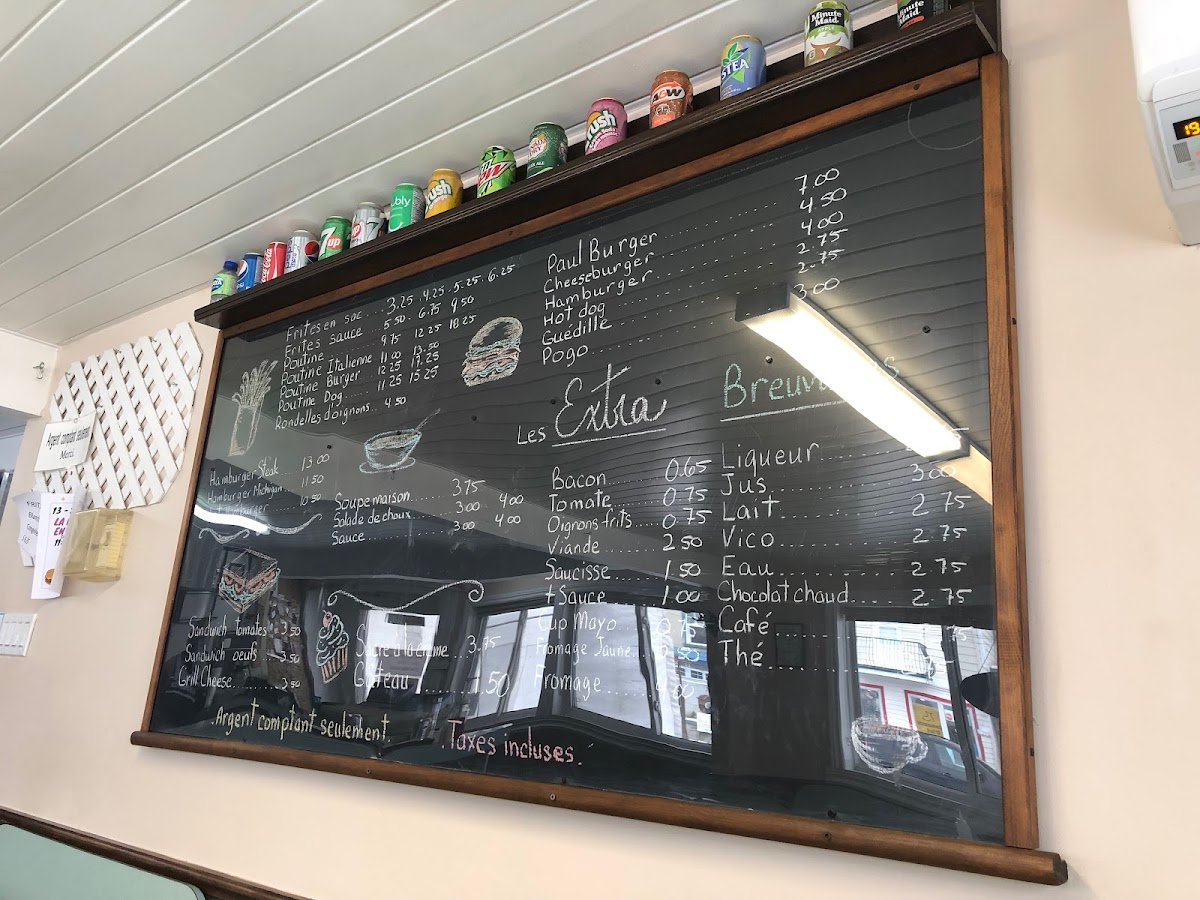 Minute Maid
Minute Maid
NESTEA
A&W
Crush
CANADA DRY
DEW
Crush
bubly
7up
Coca-Cola
19
Frites en sac... 3.25 . 4.25 . 5.25 . 6.25
Frites sauce... 5.50 . 6.75 9.50
Poutine 9.75 12.25 18.25
Poutine Italienne 11.00 13.50
Poutine Burger 12.25 17.25
Poutine Dog.... 11.25 15.25
Rondelles d'oignons.. 4.50
Paul Burger ........ 7.00
Cheeseburger ........ 4.50
Hamburger ........ 4.00
Hot dog ........ 2.75
Guédille ........ 2.75
Pogo ........ 3.00
Hamburger Steak... 13.00
Hamburger Michigan 11.50
Hamburger 10.50
Soupe maison....... 3.75
Salade de choux... 3.00 4.00
Sauce.............. 3.00 4.00
Les Extra
Bacon......... 0.65
Tomate........ 0.75
Oignons frits... 0.75
Viande........ 2.50
Saucisse...... 1.50
+ Sauce....... 1.00
Cup Mayo ..... 0.75
Fromage Jaune.. 0.50
Fromage .....
Liqueur
Jus............ 3.00
Lait........... 2.75
Vico........... 2.75
Eau............ 2.75
Chocolat chaud..... 2.75
Café
Thé
Sandwich tomates 3.50
Sandwich oeufs ... 3.50
Grill Cheese........... 3.50
Sucre à la crème 3.75
Gâteau ........ 1.50
.Argent comptant seulement.
.Taxes incluses.
Argent comptant seulement
Merci